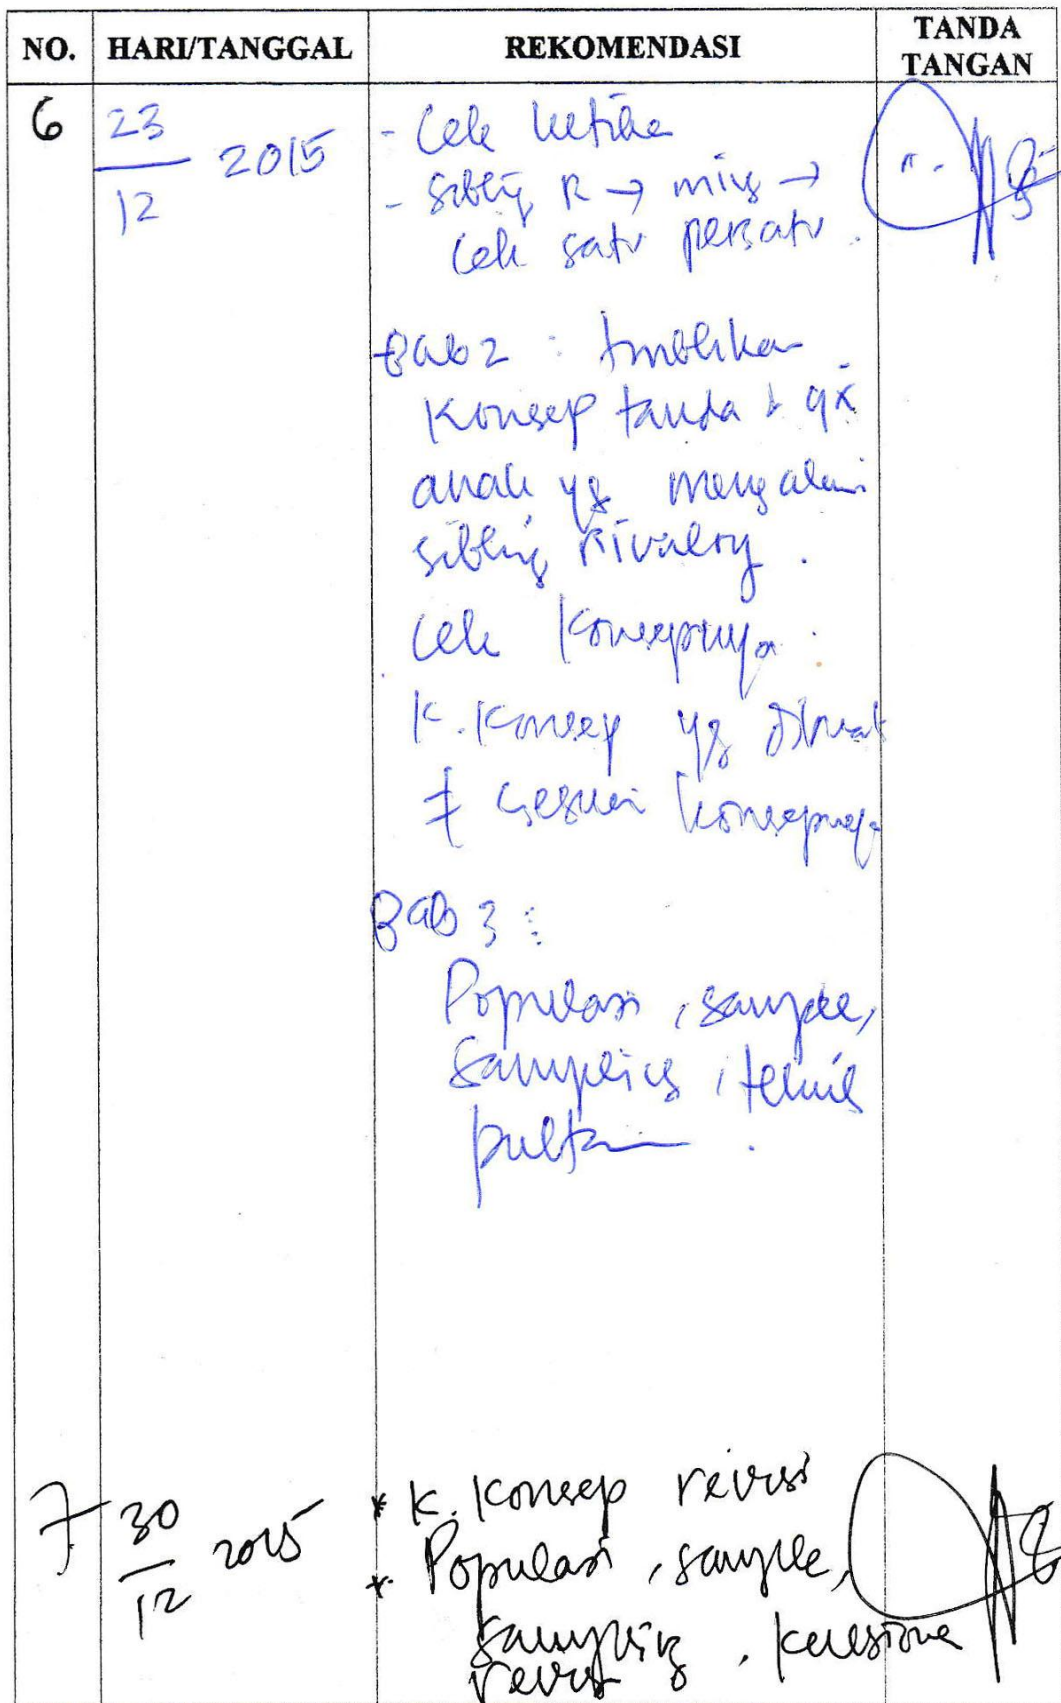 NO. HARI/TANGGAL REKOMENDASI TANDA TANGAN
6 23/12 2015 - Cek
- Sibling R → →
Cek satu persatu.
Bab 2 :
Konsep tanda &
anak yg mengalami
sibling rivalry.
Cek Konsepnya.
K. Konsep yg dibuat
≠ sesuai konsepnya
Bab 3 :
Populasi, sample,
sampling, teknik
7 30/12 2015 * K. Konsep revisi
* Populasi, sample,
sampling, kuesioner
revisi